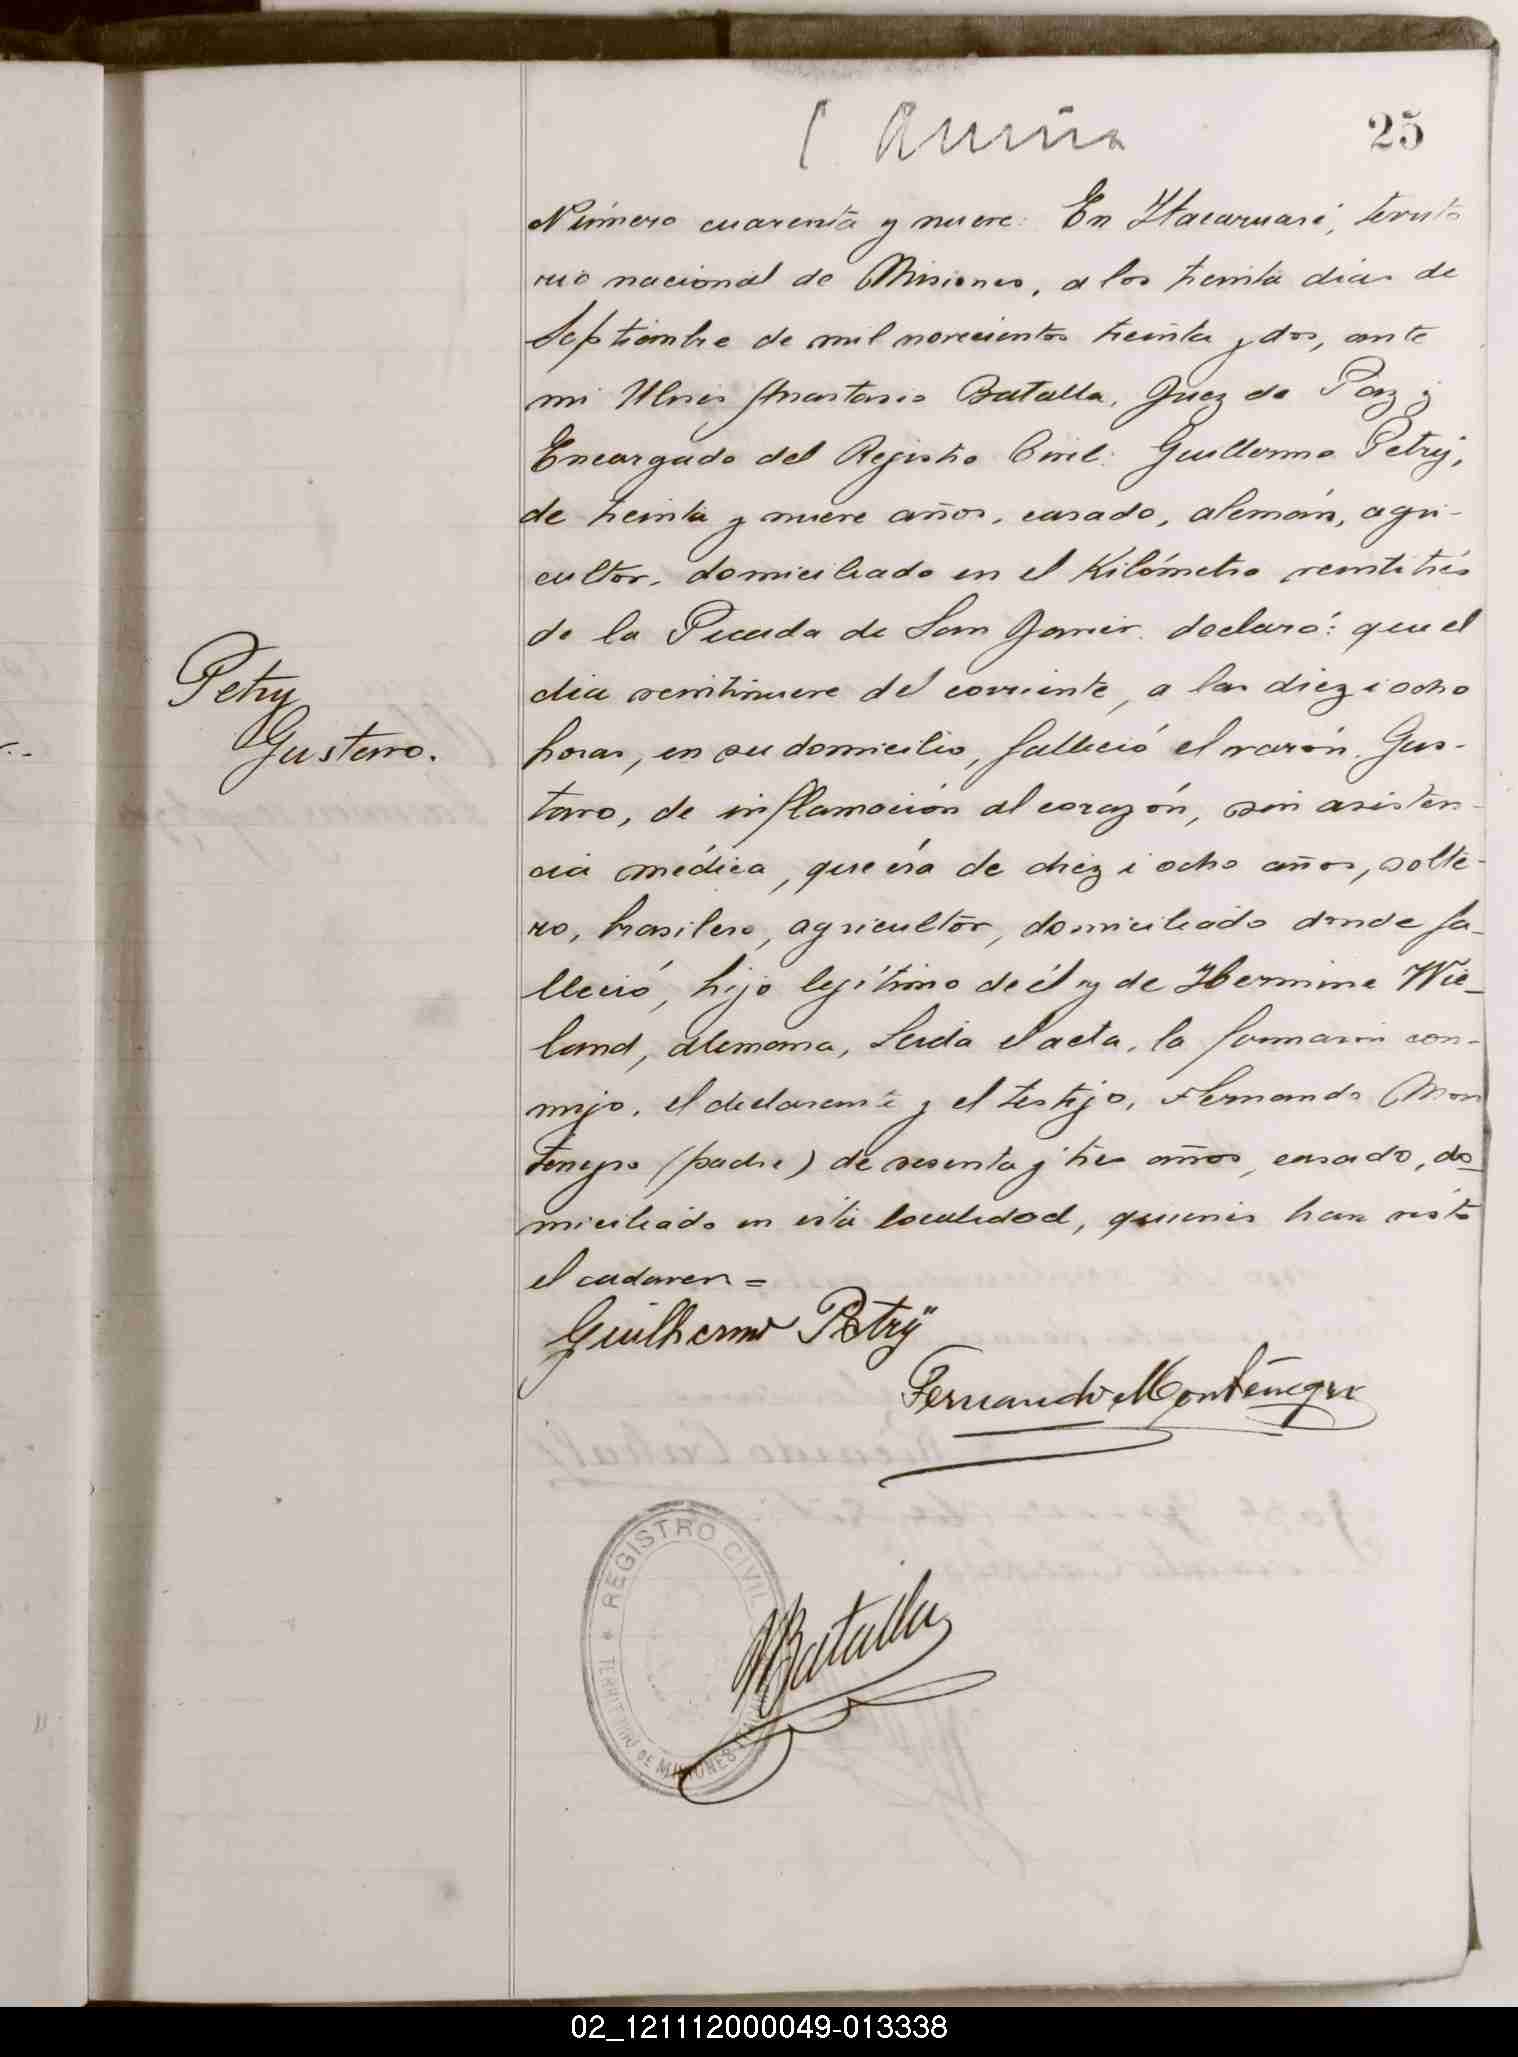 25
Número cuarenta y nueve: En Itacaruaré, territo
rio nacional de Misiones, a los treinta días de
Septiembre de mil novecientos treinta y dos, ante
mi Ulises Anastasio Batalla, Juez de Paz y
Encargado del Registro Civil: Guillermo Petry,
de treinta y nueve años, casado, alemán, agri-
cultor, domiciliado en el Kilómetro veintitrés
de la Picada de San Javier, declaró: que el
día veintinueve del corriente, a las diez i ocho
horas, en su domicilio, falleció el varón Gus-
tavo, de inflamación al corazón, sin asisten-
cia médica, que era de diez i ocho años, solte-
ro, brasilero, agricultor, domiciliado donde fa-
lleció, hijo legítimo de él y de Hermine Wie-
land, alemana, Leida el acta, la firmaron con-
migo, el declarante y el testigo, Fernando Mon
tenegro (padre) de sesenta y tres años, casado, do
miciliado en esta localidad, quienes han visto
el cadaver =
Petry
Gustavo.
Guilhermo Petrÿ
Fernando Montenegro
REGISTRO CIVIL
TERRITORIO DE MISIONES
Batalla
02_121112000049-013338